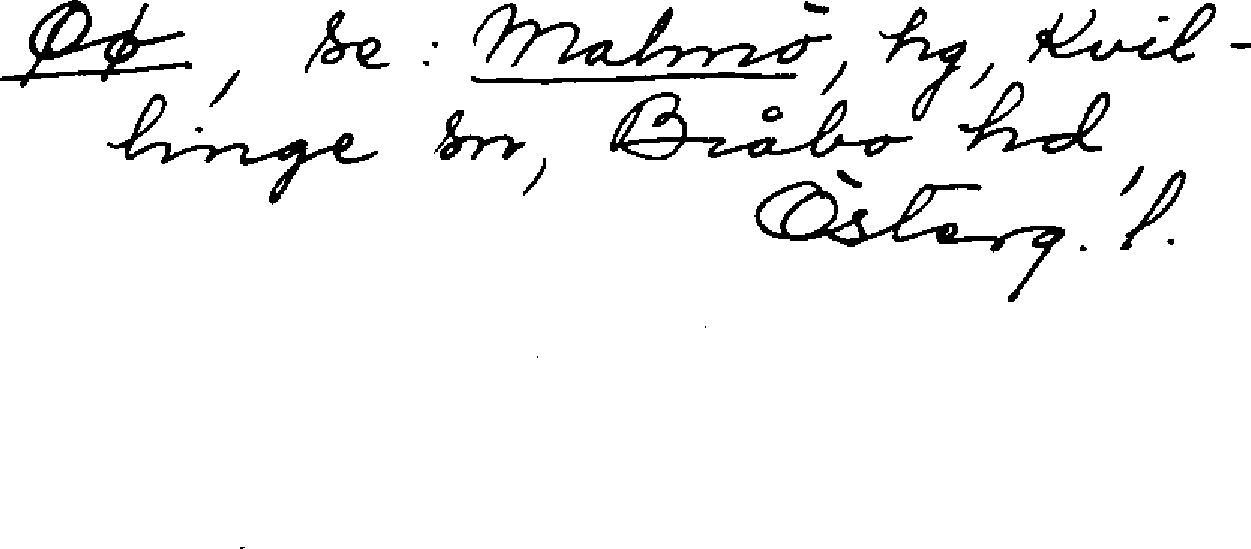 Øø, se: Malmö, hg, Kvil-
linge sn, Bråbo hd,
Österg. l.